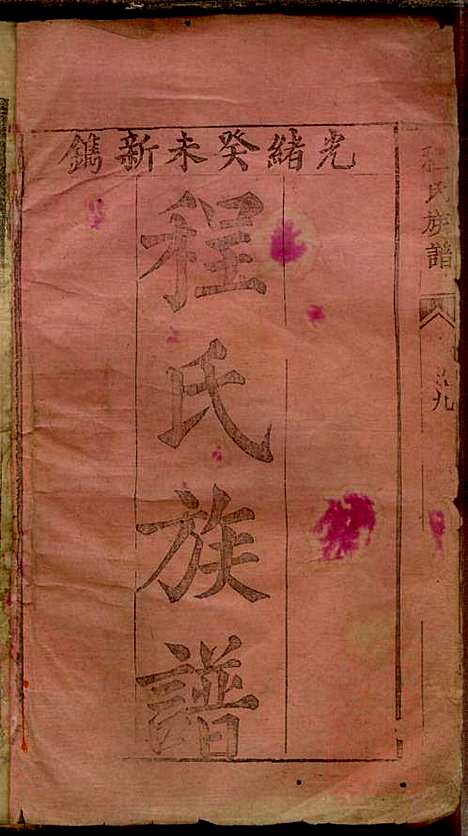 光緒癸未新鐫
程氏族譜
程氏族譜